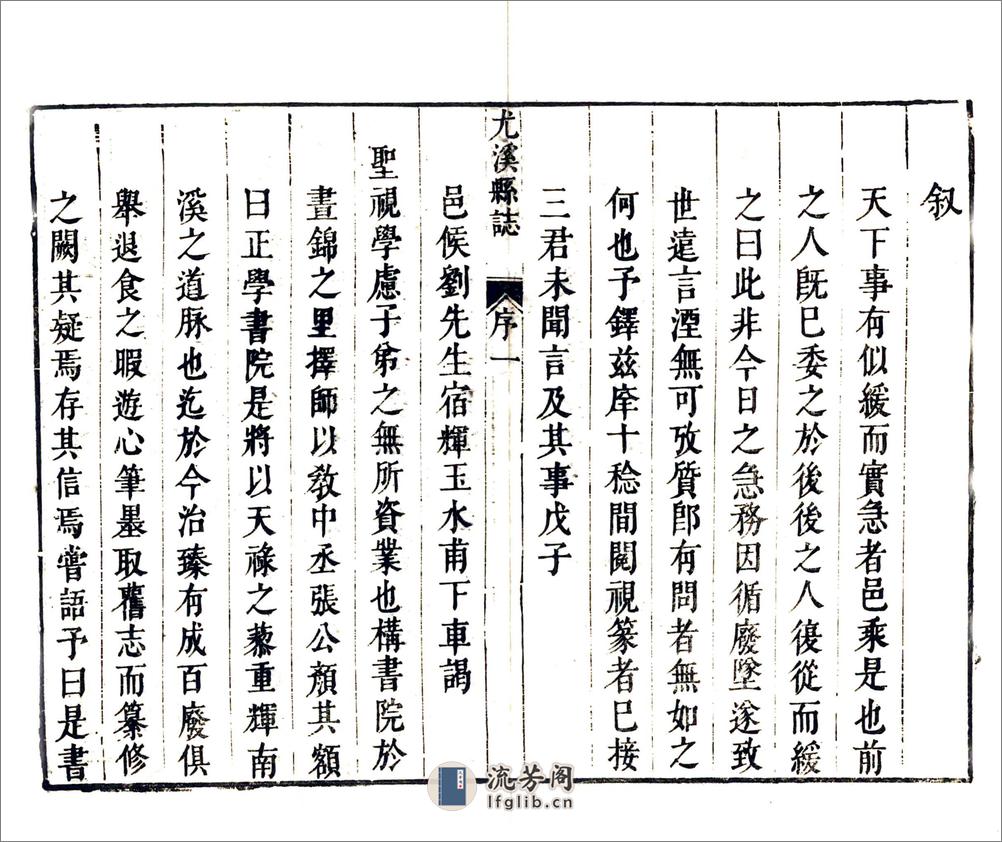 叙
天下事有似緩而實急者邑乘是也前
之人既已委之於後後之人復從而緩
之曰此非今日之急務因循廢墜遂致
世遠言湮無可攷質郎有問者無如之
何也予鐸兹庠十稔間閱視篆者已接
三君未聞言及其事戊子
尤溪縣誌
序一
邑侯劉先生宿輝玉水甫下車謁
聖視學慮子弟之無所資業也構書院於
晝錦之里擇師以教中丞張公顏其額
曰正學書院是將以天祿之藜重輝南
溪之道脉也迄於今治臻有成百廢俱
舉退食之暇遊心筆墨取舊志而纂修
之闕其疑焉存其信焉嘗語予曰是書
流芳阁
lfglib.cn